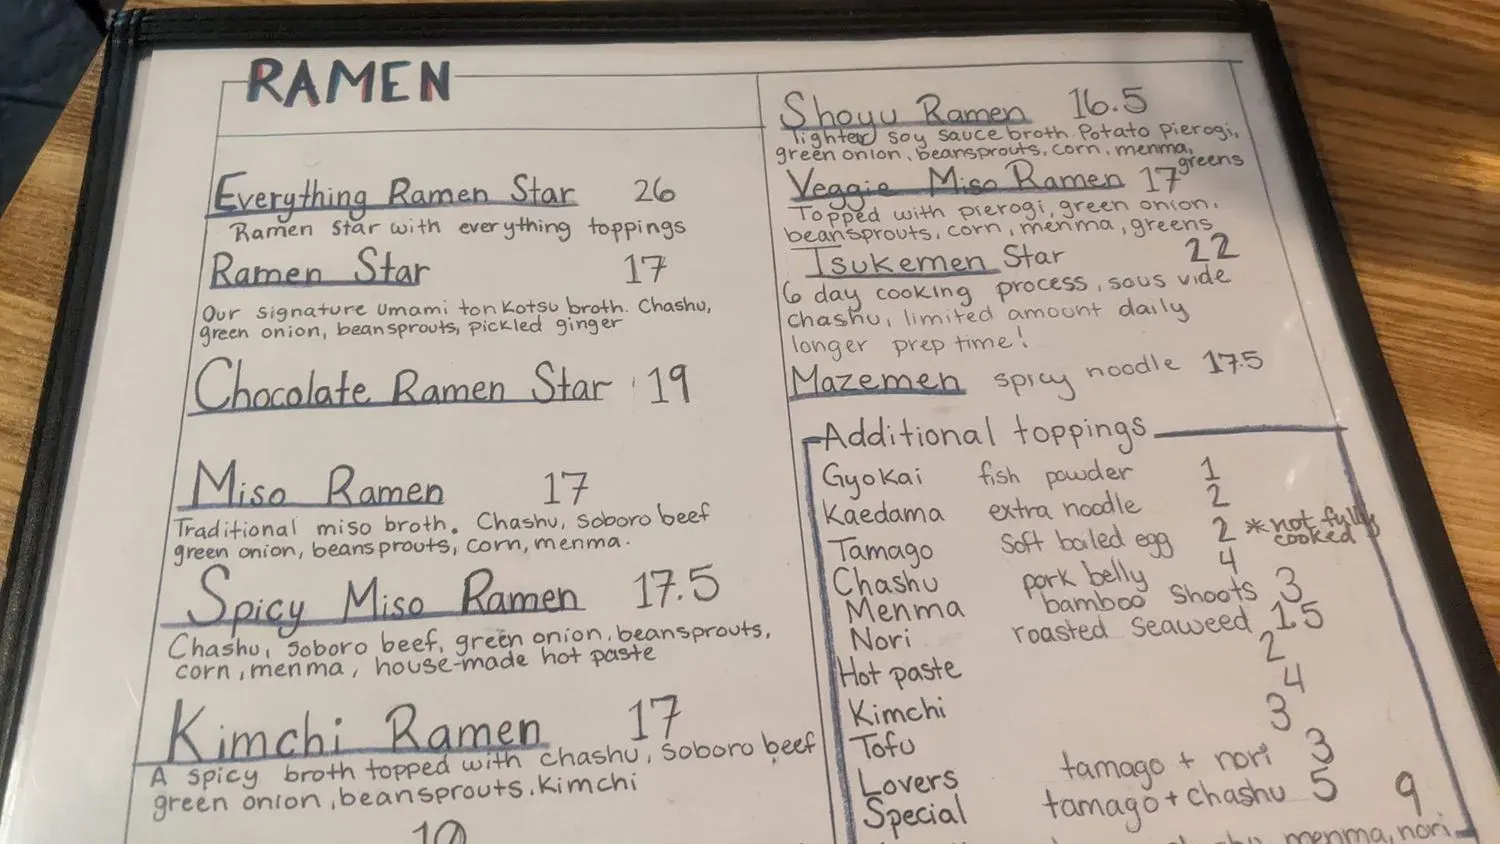 RAMEN
Everything Ramen Star 26
Ramen Star with everything toppings
Ramen Star 17
Our signature umami tonkotsu broth. Chashu,
green onion, beansprouts, pickled ginger
Chocolate Ramen Star 19
Miso Ramen 17
Traditional miso broth. Chashu, soboro beef
green onion, beansprouts, corn, menma.
Spicy Miso Ramen 17.5
Chashu, soboro beef, green onion, beansprouts,
corn, menma, house-made hot paste
Kimchi Ramen 17
A spicy broth topped with chashu, soboro beef
green onion, beansprouts, kimchi
Shoyu Ramen 16.5
lighter soy sauce broth. Potato pierogi,
green onion, beansprouts, corn, menma,
greens
Veggie Miso Ramen 17
Topped with pierogi, green onion,
beansprouts, corn, menma, greens
Tsukemen Star 22
6 day cooking process, sous vide
chashu, limited amount daily
longer prep time!
Mazemen spicy noodle 17.5
Additional toppings
Gyokai fish powder 1
Kaedama extra noodle 2
Tamago soft boiled egg 2 *not fully
cooked
Chashu pork belly 4
Menma bamboo shoots 3
Nori roasted seaweed 1.5
Hot paste 2
Kimchi 4
Tofu 3
Lovers tamago + nori 3
Special tamago + chashu 5
9
menma, nori